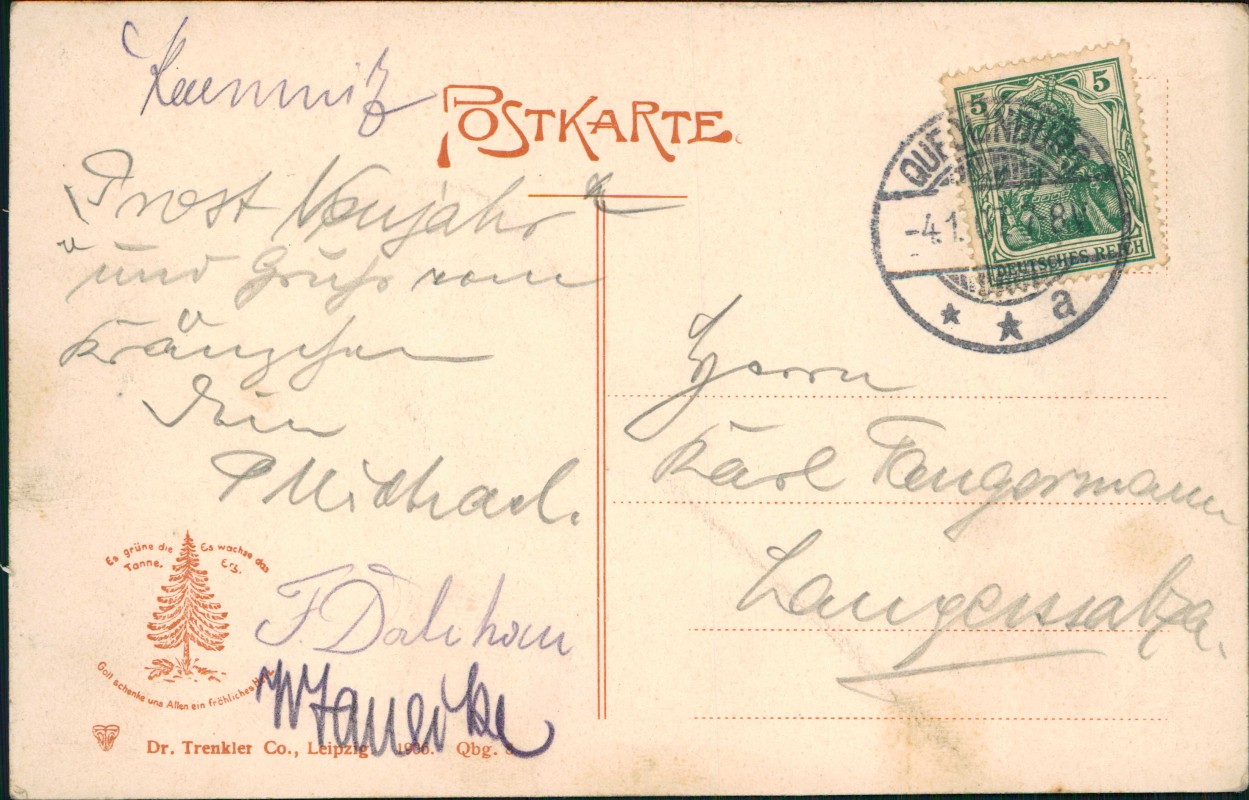 POSTKARTE
Prost Neujahr
und Gruß vom
Kränzchen
Dein
Michael.
Es grüne die Tanne,
Es wachse das Erz.
Gott schenke uns Allen ein fröhliches
Dr. Trenkler Co., Leipzig 1906. Qbg.
5 5
DEUTSCHES REICH
QUEDLINBURG
-4.1.07. 7.8V
* * a
Herrn
Karl Tangermann
Langensalza.